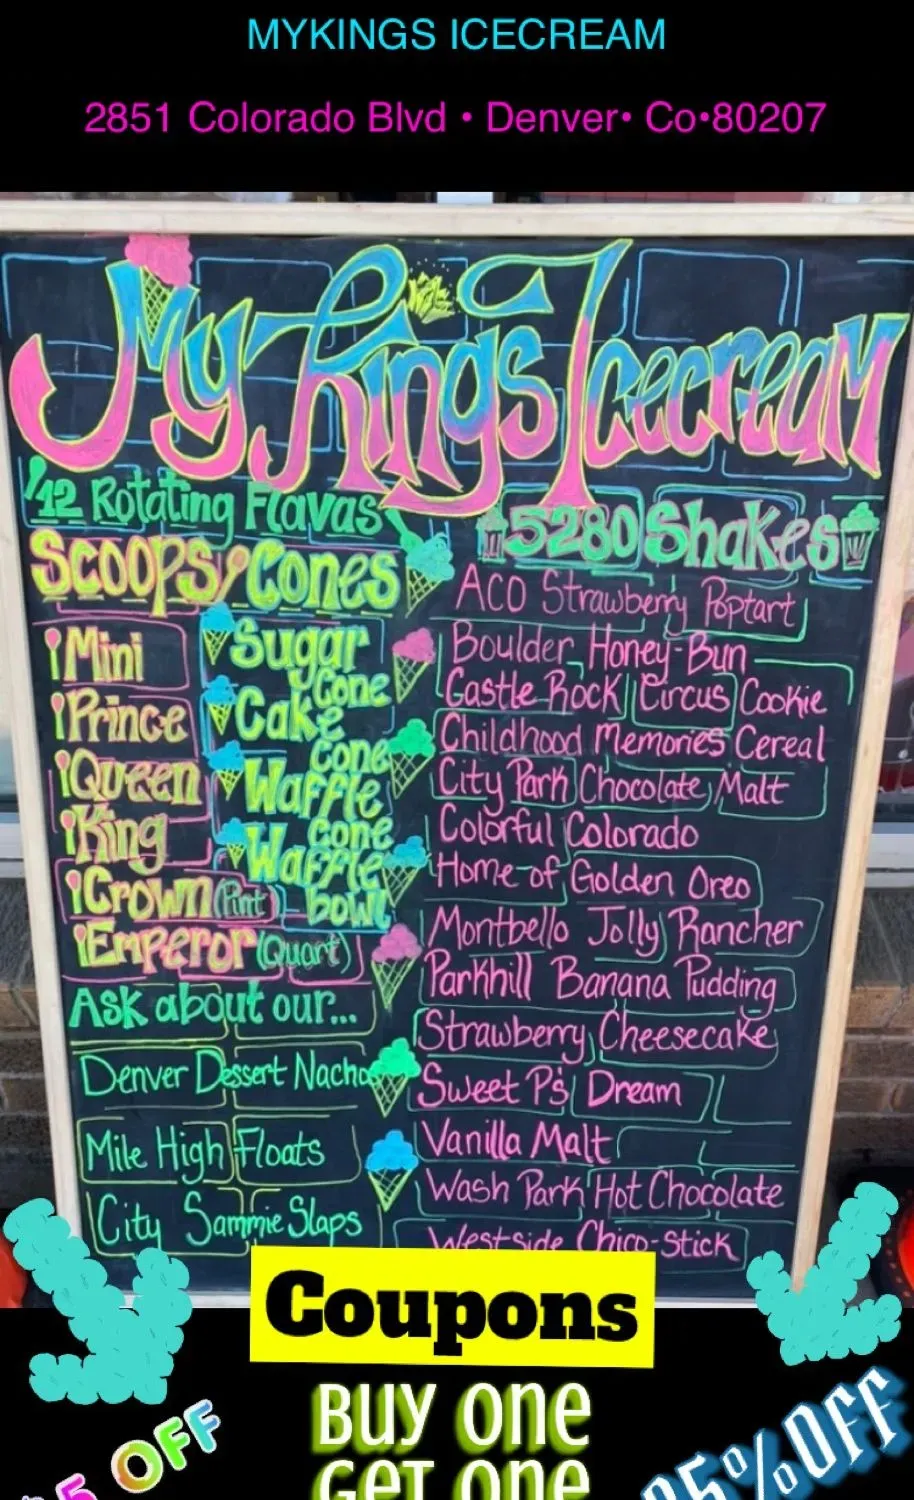 MYKINGS ICECREAM
2851 Colorado Blvd • Denver• Co•80207
My Kings Icecream
12 Rotating Flavas
Scoops
Cones
Mini
Prince
Queen
King
Crown (Pint)
Emperor (Quart)
Sugar Cone
Cake Cone
Waffle Cone
Waffle bowl
Ask about our...
Denver Dessert Nachos
Mile High Floats
City Sammie Slaps
5280 Shakes
ACO Strawberry Poptart
Boulder Honey-Bun
Castle Rock Circus Cookie
Childhood Memories Cereal
City Park Chocolate Malt
Colorful Colorado
Home of Golden Oreo
Montbello Jolly Rancher
Parkhill Banana Pudding
Strawberry Cheesecake
Sweet P's Dream
Vanilla Malt
Wash Park Hot Chocolate
Westside Chico-Stick
Coupons
5 OFF
BUY ONE
GET ONE
%OFF